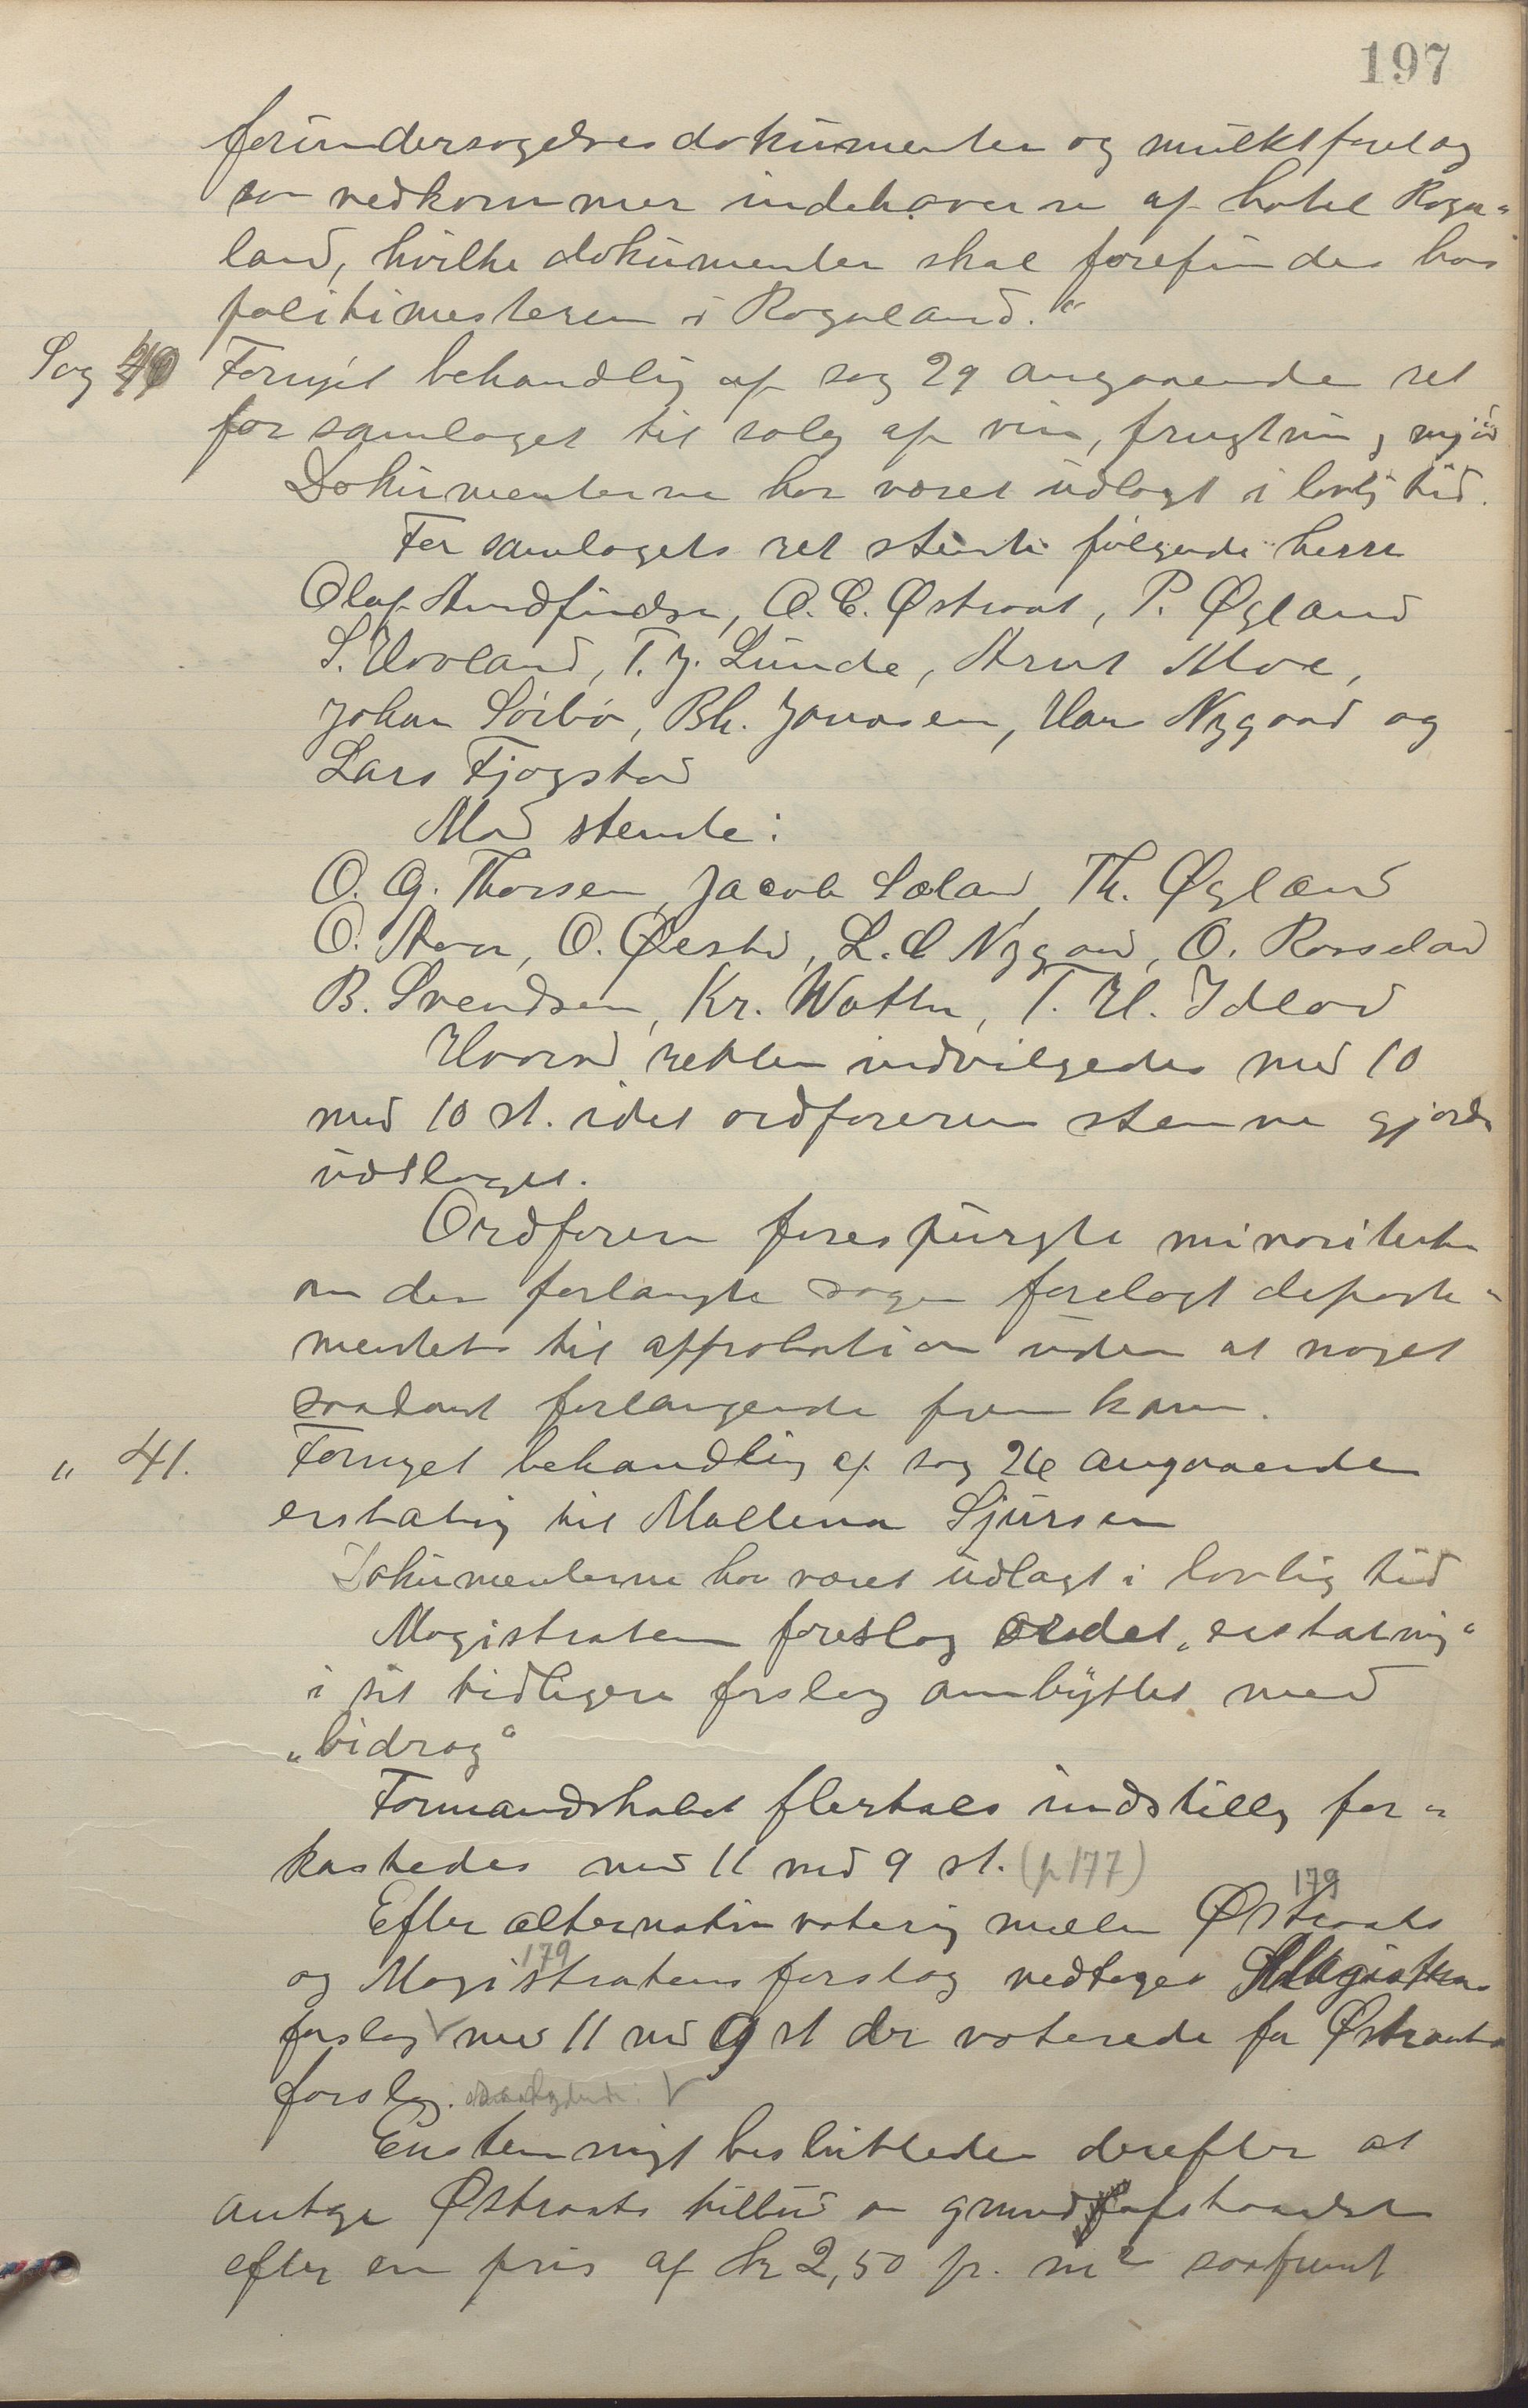 197
forundersøgelsesdokumenter og mulktforelag
som vedkommer indehaverne af hotel Roga-
land, hvilke dokumenter skal forefindes hos
politimesteren i Rogaland."
Sag 40 Fornyet behandling af sag 29 angaaende ret
for samlaget til salg af vin, frugtvin, mjød
Dokumenterne har været udlagt i lovlig tid.
For samlagets ret stemte følgende herrer
Olaf Aadfindsen, O. C. Østraat, P. Øgland
S. Hovland, T. J. Lunde, Arnt Moe,
Johan Sørbø, Bh. Jonassen, Hans Nygaard og
Lars Fjogstad
Mod stemte:
O. G. Thorsen, Jacob Sæland, Th. Øglænd
O. Aase, O. Øestad, L. C Nygaard, O. Rosseland
B. Svendsen, Kr. Watne, T. H. Idland
Hvorved retten indvilgedes med 10
mod 10 st. idet ordførerens stemme gjorde
udslaget.
Ordføreren forespurgte minoriteten
om den forlangte sagen forelagt departe-
mentets til approbation uden at noget
saadant forlangende fremkom.
" 41. Fornyet behandling af sag 26 angaaende
erstatning til Mallena Sjursen
Dokumenterne har været udlagt i lovlig tid
Magistraten foreslog ordet "erstatning"
i sit tidligere forslag ombyttet med
"bidrag"
Formandskabets flertals indstilling for-
kastedes med 11 mod 9 st. (p 177)
179
Efter alternativ votering mellem Østraats
179
og Magistratens forslag vedtoges Magistratens
forslag V med 11 mod 9 st der voterede for Østraats
forslag. V
Enstemmigt besluttedes derefter at
antage Østraats tilbud om grundafstaaelse
efter en pris af kr 2,50 pr. m² saafremt